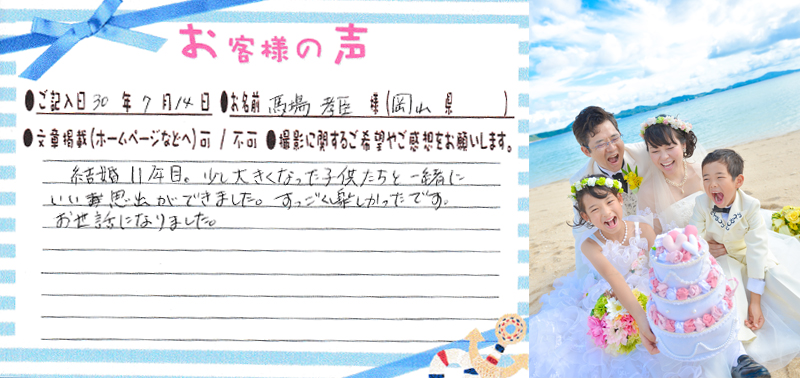 お客様の声
●ご記入日 30 年 7 月 14 日 ●お名前 馬場 孝臣 様 (岡山 県 )
●文章掲載(ホームページなどへ)可 / 不可 ●撮影に関するご希望やご感想をお願いします。
結婚11年目。少し大きくなった子供たちと一緒に
いい思い出ができました。すっごく楽しかったです。
お世話になりました。